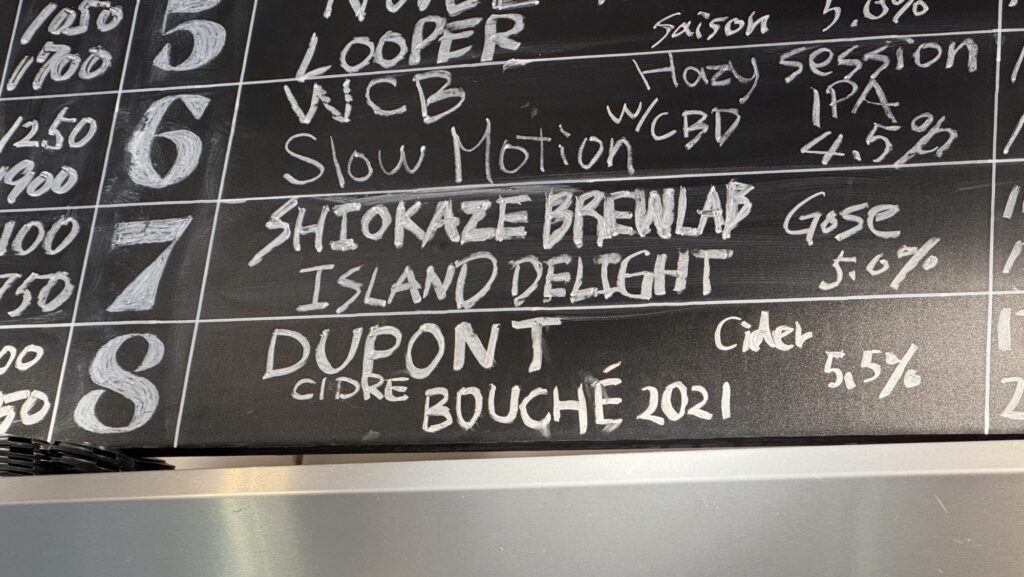 1050
1700
5
LOOPER
Saison
5.0%
1250
1900
6
WCB
Slow Motion
w/CBD
Hazy session
IPA
4.5%
100
750
7
SHIOKAZE BREWLAB
ISLAND DELIGHT
Gose
5.0%
00
50
8
DUPONT
CIDRE
BOUCHÉ 2021
Cider
5.5%